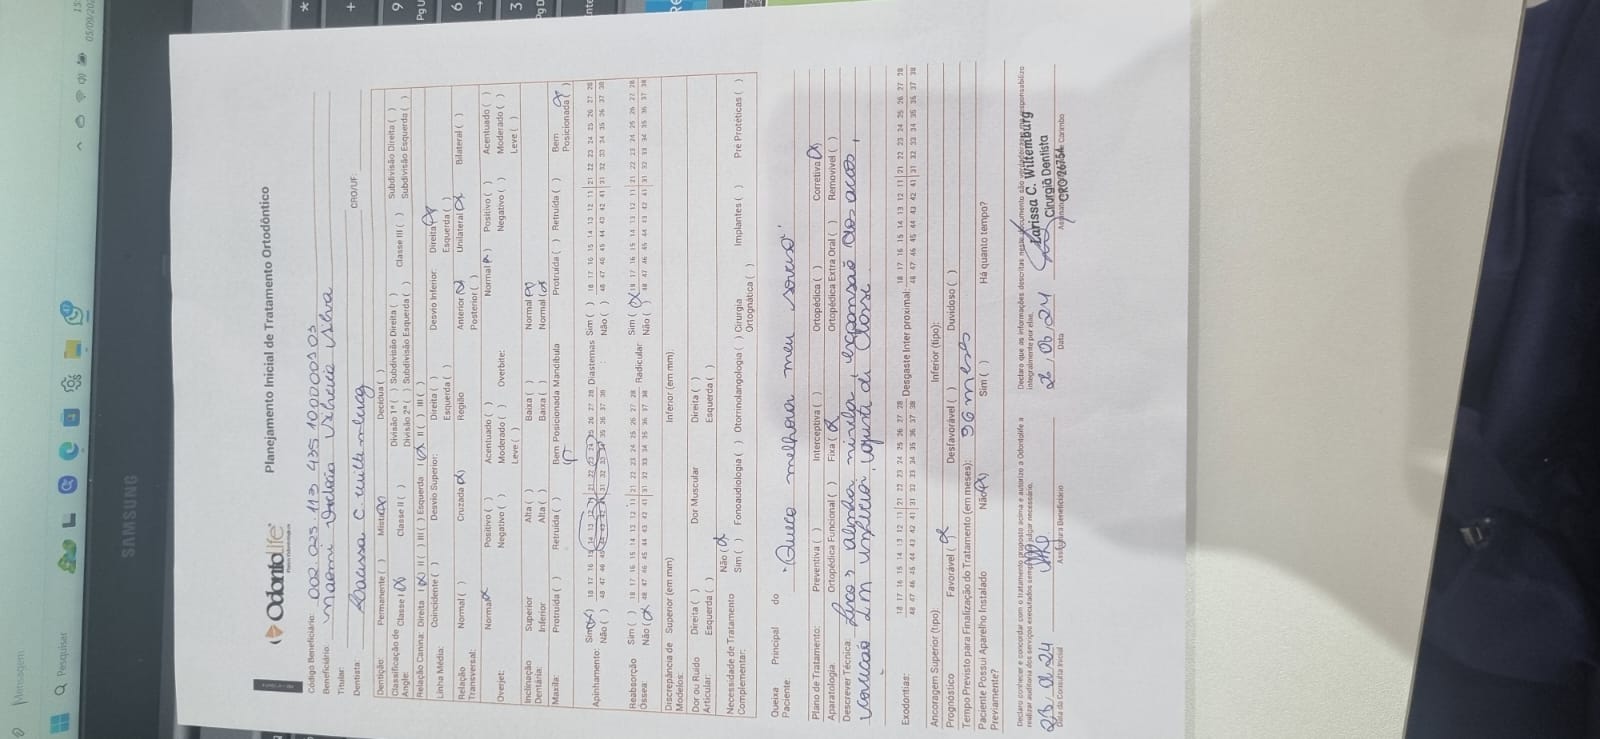 Planejamento Inicial de Tratamento Ortodôntico
OdontoLife
Código Beneficiário: 002.025.113 435 10000 0103
Beneficiário: Naomi Vitória Silva
Titular:
Dentista: Larissa C. Wiltemburg CRO/UF:
Dentição: Permanente ( ) Mista (x) Decídua ( )
Classificação de Angle: Classe I (x) Classe II ( ) Divisão 1ª ( ) Subdivisão Direita ( ) Classe III ( ) Subdivisão Direita ( )
Divisão 2ª ( ) Subdivisão Esquerda ( ) Subdivisão Esquerda ( )
Relação Canina: Direita I (x) II ( ) III ( ) Esquerda I (x) II ( ) III ( )
Linha Média: Coincidente ( ) Desvio Superior: Direita ( ) Desvio Inferior: Direita (x)
Esquerda ( ) Esquerda ( )
Relação Transversal: Normal ( ) Cruzada (x) Região Anterior (x) Unilateral (x) Bilateral ( )
Posterior ( )
Overjet: Normal (x) Positivo ( ) Acentuado ( ) Overbite: Normal (x) Positivo ( ) Acentuado ( )
Negativo ( ) Moderado ( ) Negativo ( ) Moderado ( )
Leve ( ) Leve ( )
Inclinação Dentária: Superior Alta ( ) Baixa ( ) Normal (x)
Inferior Alta ( ) Baixa ( ) Normal (x)
Maxila: Protruída ( ) Retruída ( ) Bem Posicionada Mandíbula Protruída ( ) Retruída ( ) Bem Posicionada (x)
Apinhamento: Sim (x) 18 17 16 15 14 13 12 11 | 21 22 23 24 25 26 27 28 Diastemas Sim ( ) 18 17 16 15 14 13 12 11 | 21 22 23 24 25 26 27 28
Não ( ) 48 47 46 45 44 43 42 41 | 31 32 33 34 35 36 37 38 Não ( ) 48 47 46 45 44 43 42 41 | 31 32 33 34 35 36 37 38
Reabsorção Óssea: Sim ( ) 18 17 16 15 14 13 12 11 | 21 22 23 24 25 26 27 28 Radicular: Sim ( ) 18 17 16 15 14 13 12 11 | 21 22 23 24 25 26 27 28
Não (x) 48 47 46 45 44 43 42 41 | 31 32 33 34 35 36 37 38 Não (x) 48 47 46 45 44 43 42 41 | 31 32 33 34 35 36 37 38
Discrepância de Modelos: Superior (em mm) Inferior (em mm):
Dor ou Ruído Articular: Direita ( ) Dor Muscular Direita ( )
Esquerda ( ) Esquerda ( )
Necessidade de Tratamento Complementar: Não (x)
Sim ( ) Fonoaudiologia ( ) Otorrinolaringologia ( ) Cirurgia Ortognática ( ) Implantes ( ) Pré Protéticas ( )
Queixa Principal do Paciente "Quero melhorar meu sorriso"
Plano de Tratamento: Preventiva ( ) Interceptiva ( ) Ortopédica ( ) Corretiva (x)
Aparatologia: Ortopédica Funcional ( ) Fixa (x) Ortopédica Extra Oral ( ) Removível ( )
Descrever Técnica: expansão dos arcos,
ajuste di Classe
Exodontias: 18 17 16 15 14 13 12 11 | 21 22 23 24 25 26 27 28 Desgaste Inter proximal: 18 17 16 15 14 13 12 11 | 21 22 23 24 25 26 27 28
48 47 46 45 44 43 42 41 | 31 32 33 34 35 36 37 38 48 47 46 45 44 43 42 41 | 31 32 33 34 35 36 37 38
Ancoragem Superior (tipo): Inferior (tipo):
Prognóstico Favorável (x) Desfavorável ( ) Duvidoso ( )
Tempo Previsto para Finalização do Tratamento (em meses): 36 meses
Paciente Possui Aparelho Instalado Previamente? Não (x) Sim ( ) Há quanto tempo?
Declaro conhecer e concordar com o tratamento proposto acima e autorizo a Odontolife a
realizar auditoria dos serviços executados sempre que julgar necessário.
Declaro que as informações descritas neste documento são verdadeiras responsabilizo
integralmente por elas.
Data da Consulta Inicial
Assinatura Beneficiário
Data
Larissa C. Wiltemburg
Cirurgiã Dentista
CRO 26754
SAMSUNG
Pesquisar
Mensagem